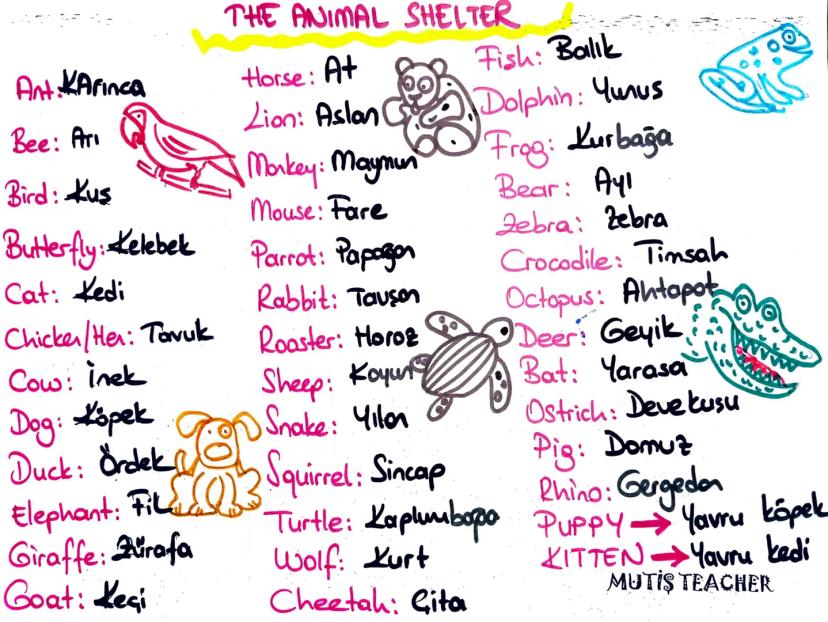 THE ANIMAL SHELTER
Ant: KArınca
Bee: Arı
Bird: Kuş
Butterfly: Kelebek
Cat: Kedi
Chicken/Hen: Tavuk
Cow: İnek
Dog: Köpek
Duck: Ördek
Elephant: Fil
Giraffe: Zürafa
Goat: Keçi
Horse: At
Lion: Aslan
Monkey: Maymun
Mouse: Fare
Parrot: Papağan
Rabbit: Tavşan
Rooster: Horoz
Sheep: Koyun
Snake: Yılan
Squirrel: Sincap
Turtle: Kaplumbağa
Wolf: Kurt
Cheetah: Çita
Fish: Balık
Dolphin: Yunus
Frog: Kurbağa
Bear: Ayı
Zebra: Zebra
Crocodile: Timsah
Octopus: Ahtapot
Deer: Geyik
Bat: Yarasa
Ostrich: Devekuşu
Pig: Domuz
Rhino: Gergedan
PUPPY → Yavru köpek
KITTEN → Yavru kedi
MUTİŞ TEACHER